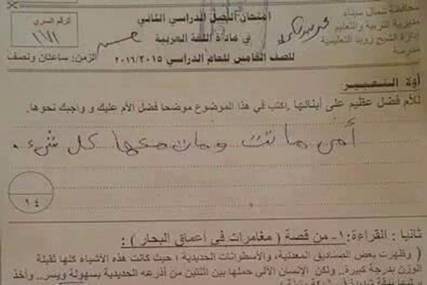 محافظة شمال سيناء
مديرية التربية والتعليم
إدارة الشيخ زويد التعليمية
مدرسة
امتحان الفصل الدراسي الثاني
في مادة اللغة العربية
للصف الخامس للعام الدراسي ٢٠١٦/٢٠١٥
الرقم السري
الزمن: ساعتان ونصف
أولا: التعبير
للأم فضل عظيم على أبنائها. اكتب في هذا الموضوع موضحا فضل الأم عليك و واجبك نحوها.
أمى ماتت ومات معها كل شىء.
١٤
ثانيا : القراءة: ١- من قصة ( مغامرات في أعماق البحار ) :
( وظهرت بعض الصناديق المعدنية، والأسطوانات الحديدية ؛ حيث كانت هذه الأشياء كلها ثقيلة
الوزن بدرجة كبيرة.. ولكن الإنسان الآلي حملها بين اثنتين من أذرعه الحديدية بسهولة ويسر.. وأخذ